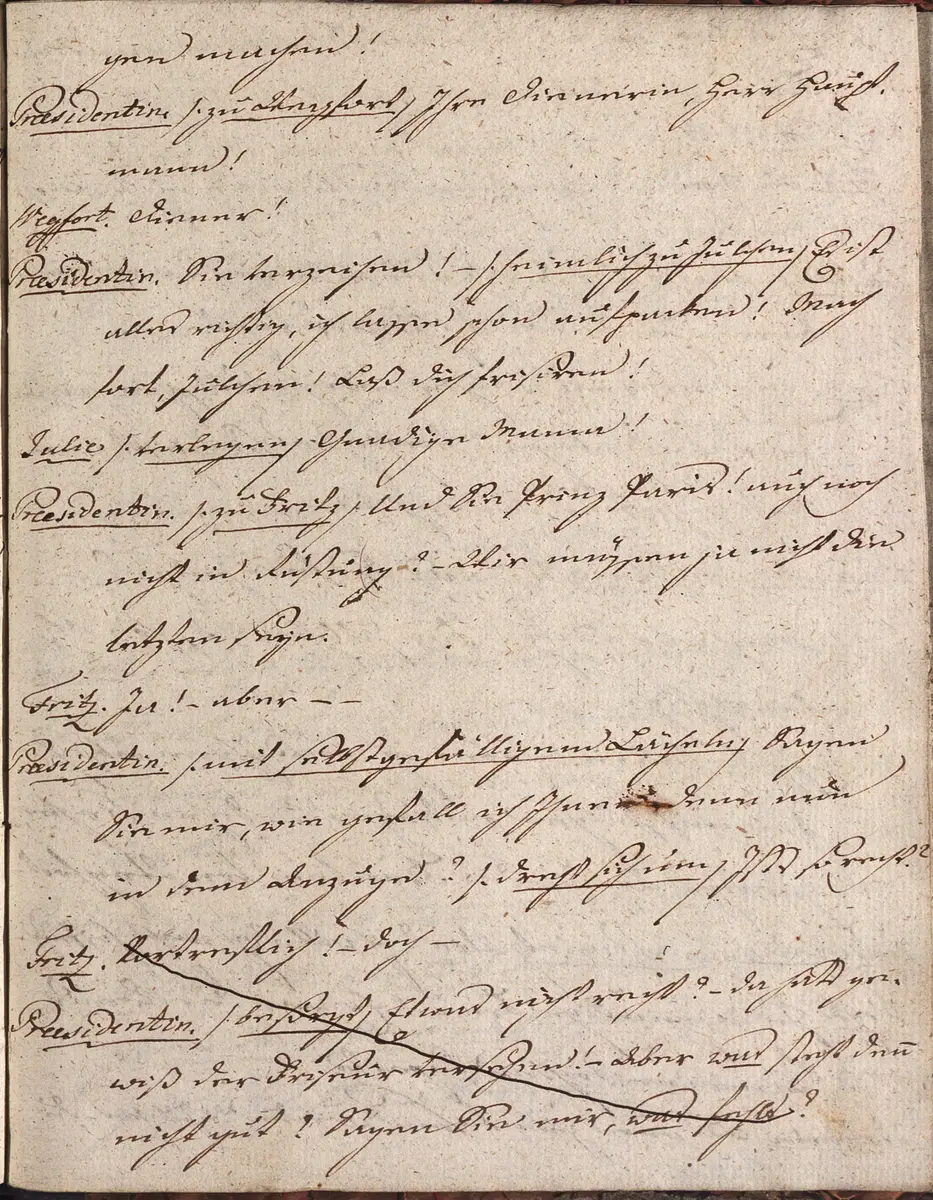 gen machen!
Præsidentin. /: zu Wegfort :/ Ihre Dienerin, Herr Haupt-
mann!
Wegfort. Diener!
Præsidentin. Sie verzeihen! – /: heimlich zu Julchen :/ Es ist
alles richtig, ich lasse schon aufpacken! Mach
fort, Julchen! Laß dich frisiren!
Julie /: verlegen :/ Gnädige Mama!
Præsidentin. /: zu Fritz :/ Und Sie Prinz Paris! auch noch
nicht in Rüstung? – Wir müssen ja nicht die
letzten seyn.
Fritz. Ja! – aber – –
Præsidentin. /: mit selbstgefälligem Lächeln :/ Sagen
Sie mir, wie gefall ich Ihnen denn nun
in dem Anzuge? /: dreht sich um :/ Ists so recht?
Fritz. Vortreflich! – doch –
Præsidentin. /: besorgt :/ Etwas nicht recht? – da hat ge-
wiß der Friseur versehen! – Aber was steht denn
nicht gut? Sagen Sie mir, was fehlt?